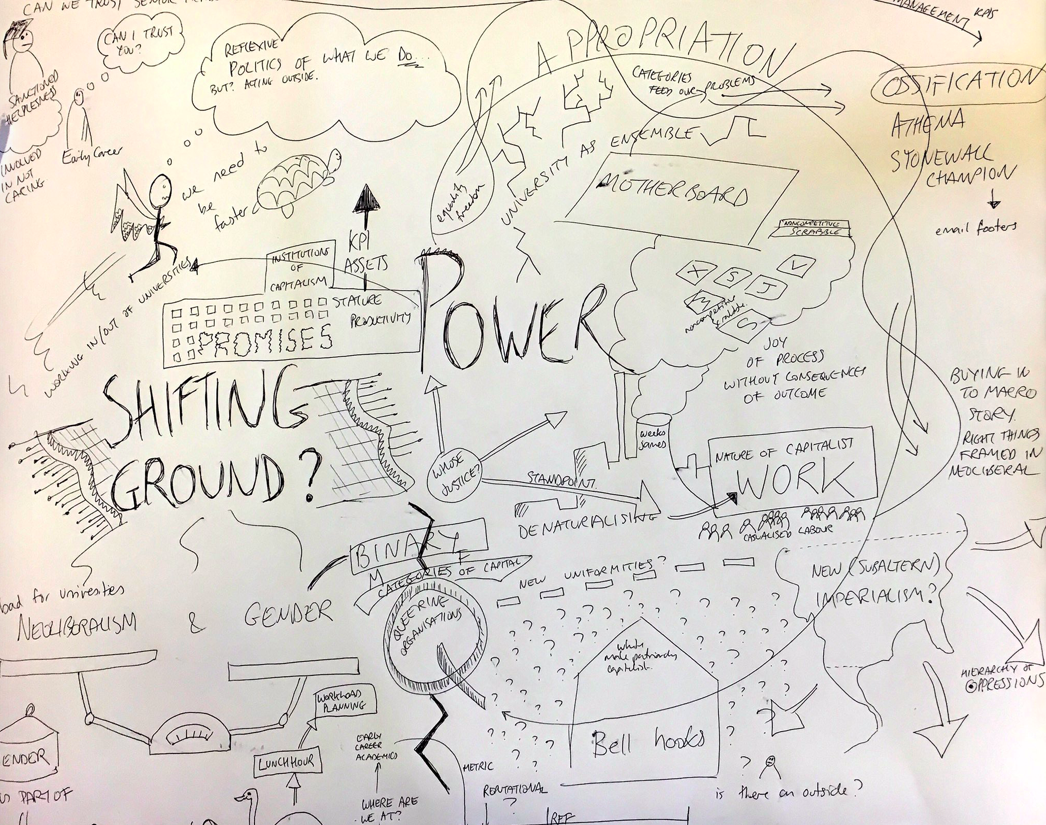 CAN WE TRUST SENIOR
CAN I TRUST
YOU?
SANCTIONED
HELPLESSNESS
INVOLVED
IN NOT
CARING
Early Career
REFLEXIVE
POLITICS OF WHAT WE DO...
BUT? ACTING OUTSIDE.
we need to
be
faster
WORKING IN/OUT OF UNIVERSITIES
INSTITUTIONS
OF
CAPITALISM
KPI
ASSETS
STATURE
PRODUCTIVITY
PROMISES
SHIFTING
GROUND?
POWER
APPROPRIATION
CATEGORIES
FEED OUR PROBLEMS
equality
freedom
UNIVERSITY AS ENSEMBLE
MOTHERBOARD
NONCOMPETITIVE
SCRABBLE
X S J V
M S
noncompetitive
scrabble
JOY
OF PROCESS
WITHOUT CONSEQUENCES
OF OUTCOME
MANAGEMENT
KPIS
OSSIFICATION
ATHENA
STONEWALL
CHAMPION
email footers
BUYING IN
TO MACRO
STORY.
RIGHT THINGS
FRAMED IN
NEOLIBERAL
WHOSE
JUSTICE?
STANDPOINT
DENATURALISING
weeks
games
NATURE OF CAPITALIST
WORK
CASUALISED LABOUR
BINARY
M
F
CATEGORIES OF CAPITAL
QUEERING
ORGANISATIONS
NEW UNIFORMITIES?
white
male patriarchy
capitalist
Bell hooks
NEW (SUBALTERN)
IMPERIALISM?
HIERARCHY OF
OPPRESSIONS
is there an outside?
bad for universities
NEOLIBERALISM
&
GENDER
WORKLOAD
PLANNING
LUNCH HOUR
EARLY
CAREER
ACADEMICS
WHERE ARE
WE AT?
METRIC
REPUTATIONAL
?
REF
ENDER
PART OF